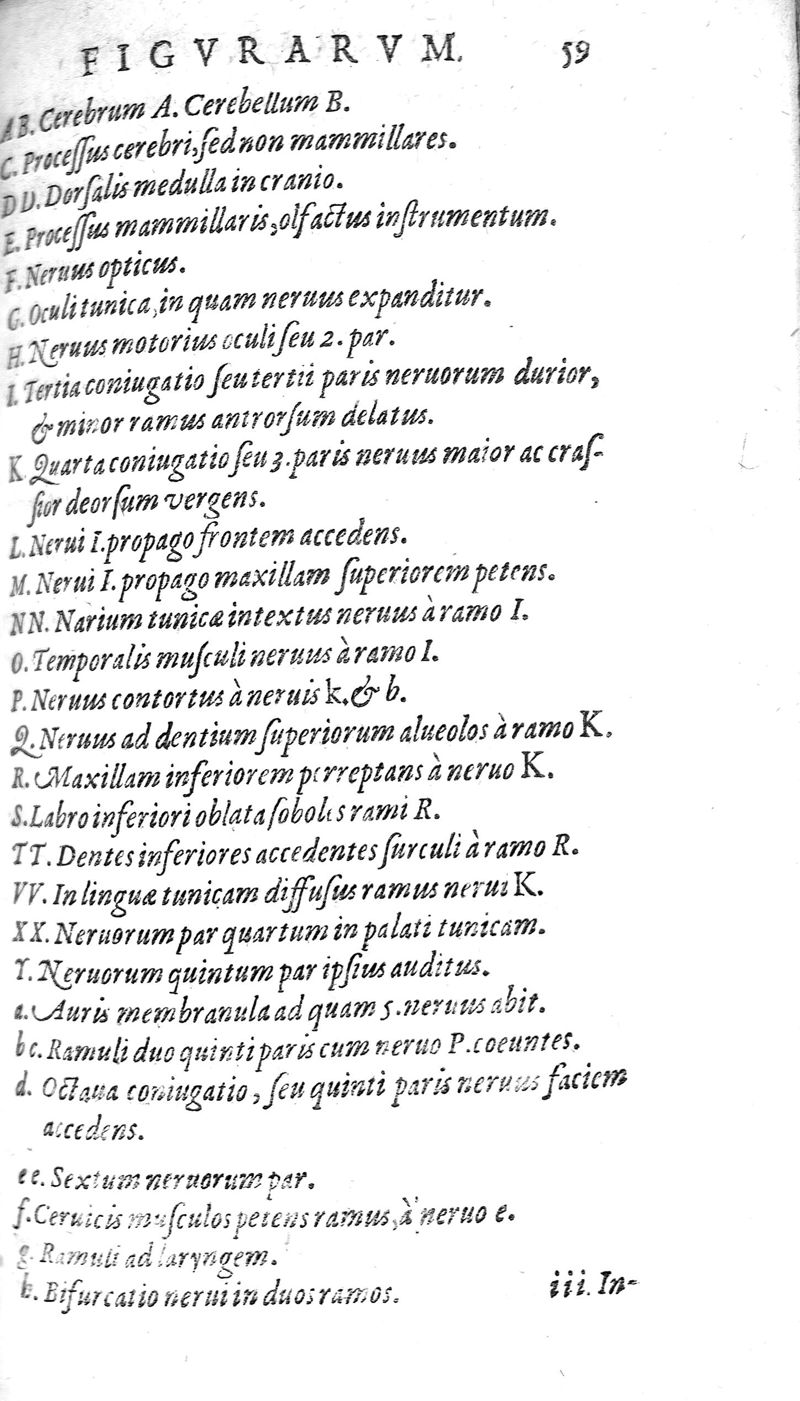 FIGVRARVM. 59
AB. Cerebrum A. Cerebellum B.
C. Proceſſus cerebri, ſed non mammillares.
DD. Dorſalis medulla in cranio.
E. Proceſſus mammillaris, olfactus inſtrumentum.
F. Neruus opticus.
G. Oculi tunica, in quam neruus expanditur.
H. Neruus motorius oculi ſeu 2. par.
I. Tertia coniugatio ſeu tertii paris neruorum durior,
& minor ramus antrorſum delatus.
K. Quarta coniugatio ſeu 3. paris neruus maior ac craſ-
ſior deorſum vergens.
L. Nerui I. propago frontem accedens.
M. Nerui I. propago maxillam ſuperiorem petens.
NN. Narium tunicæ intextus neruus à ramo I.
O. Temporalis muſculi neruus à ramo I.
P. Neruus contortus à neruis k. & b.
Q. Neruus ad dentium ſuperiorum alueolos à ramo K.
R. Maxillam inferiorem perreptans à neruo K.
S. Labro inferiori oblata ſoboles rami R.
TT. Dentes inferiores accedentes ſurculi à ramo R.
VV. In linguæ tunicam diffuſus ramus nerui K.
XX. Neruorum par quartum in palati tunicam.
Y. Neruorum quintum par ipſius auditus.
a. Auris membranula ad quam 5. neruus abit.
bc. Ramuli duo quinti paris cum neruo P. coeuntes.
d. Octaua coniugatio, ſeu quinti paris neruus faciem
accedens.
ee. Sextum neruorum par.
f. Ceruicis muſculos petens ramus, à neruo e.
g. Ramuli ad laryngem.
h. Bifurcatio nerui in duos ramos.
iii. In-